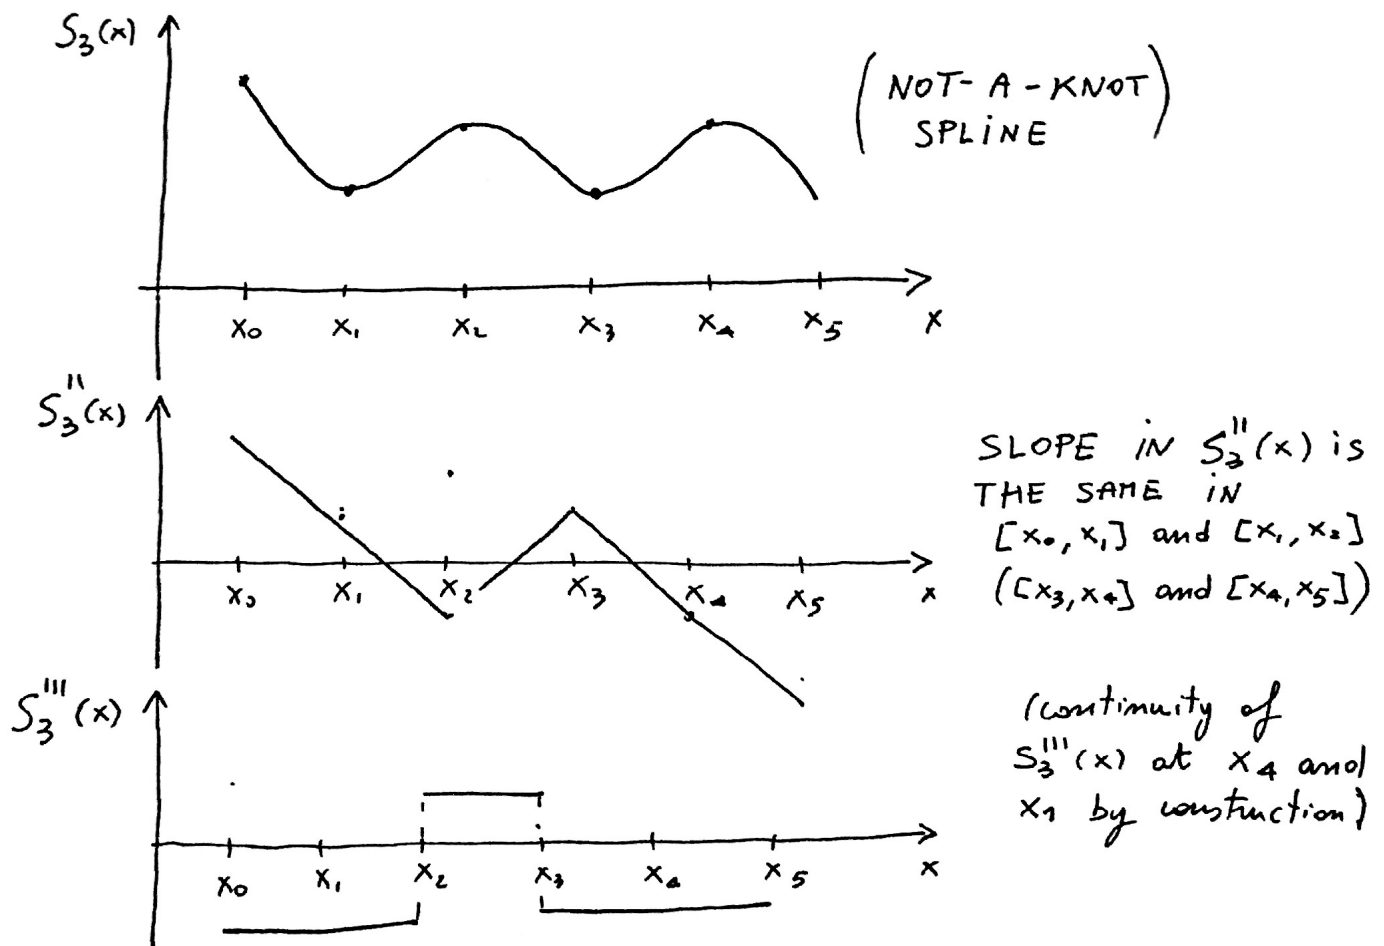 S₃(x)
(NOT-A-KNOT
SPLINE)
x₀ x₁ x₂ x₃ x₄ x₅ x
S₃''(x)
SLOPE IN S₃''(x) is
THE SAME IN
[x₀, x₁] and [x₁, x₂]
([x₃, x₄] and [x₄, x₅])
x₀ x₁ x₂ x₃ x₄ x₅ x
S₃'''(x)
(continuity of
S₃'''(x) at x₄ and
x₁ by construction)
x₀ x₁ x₂ x₃ x₄ x₅ x